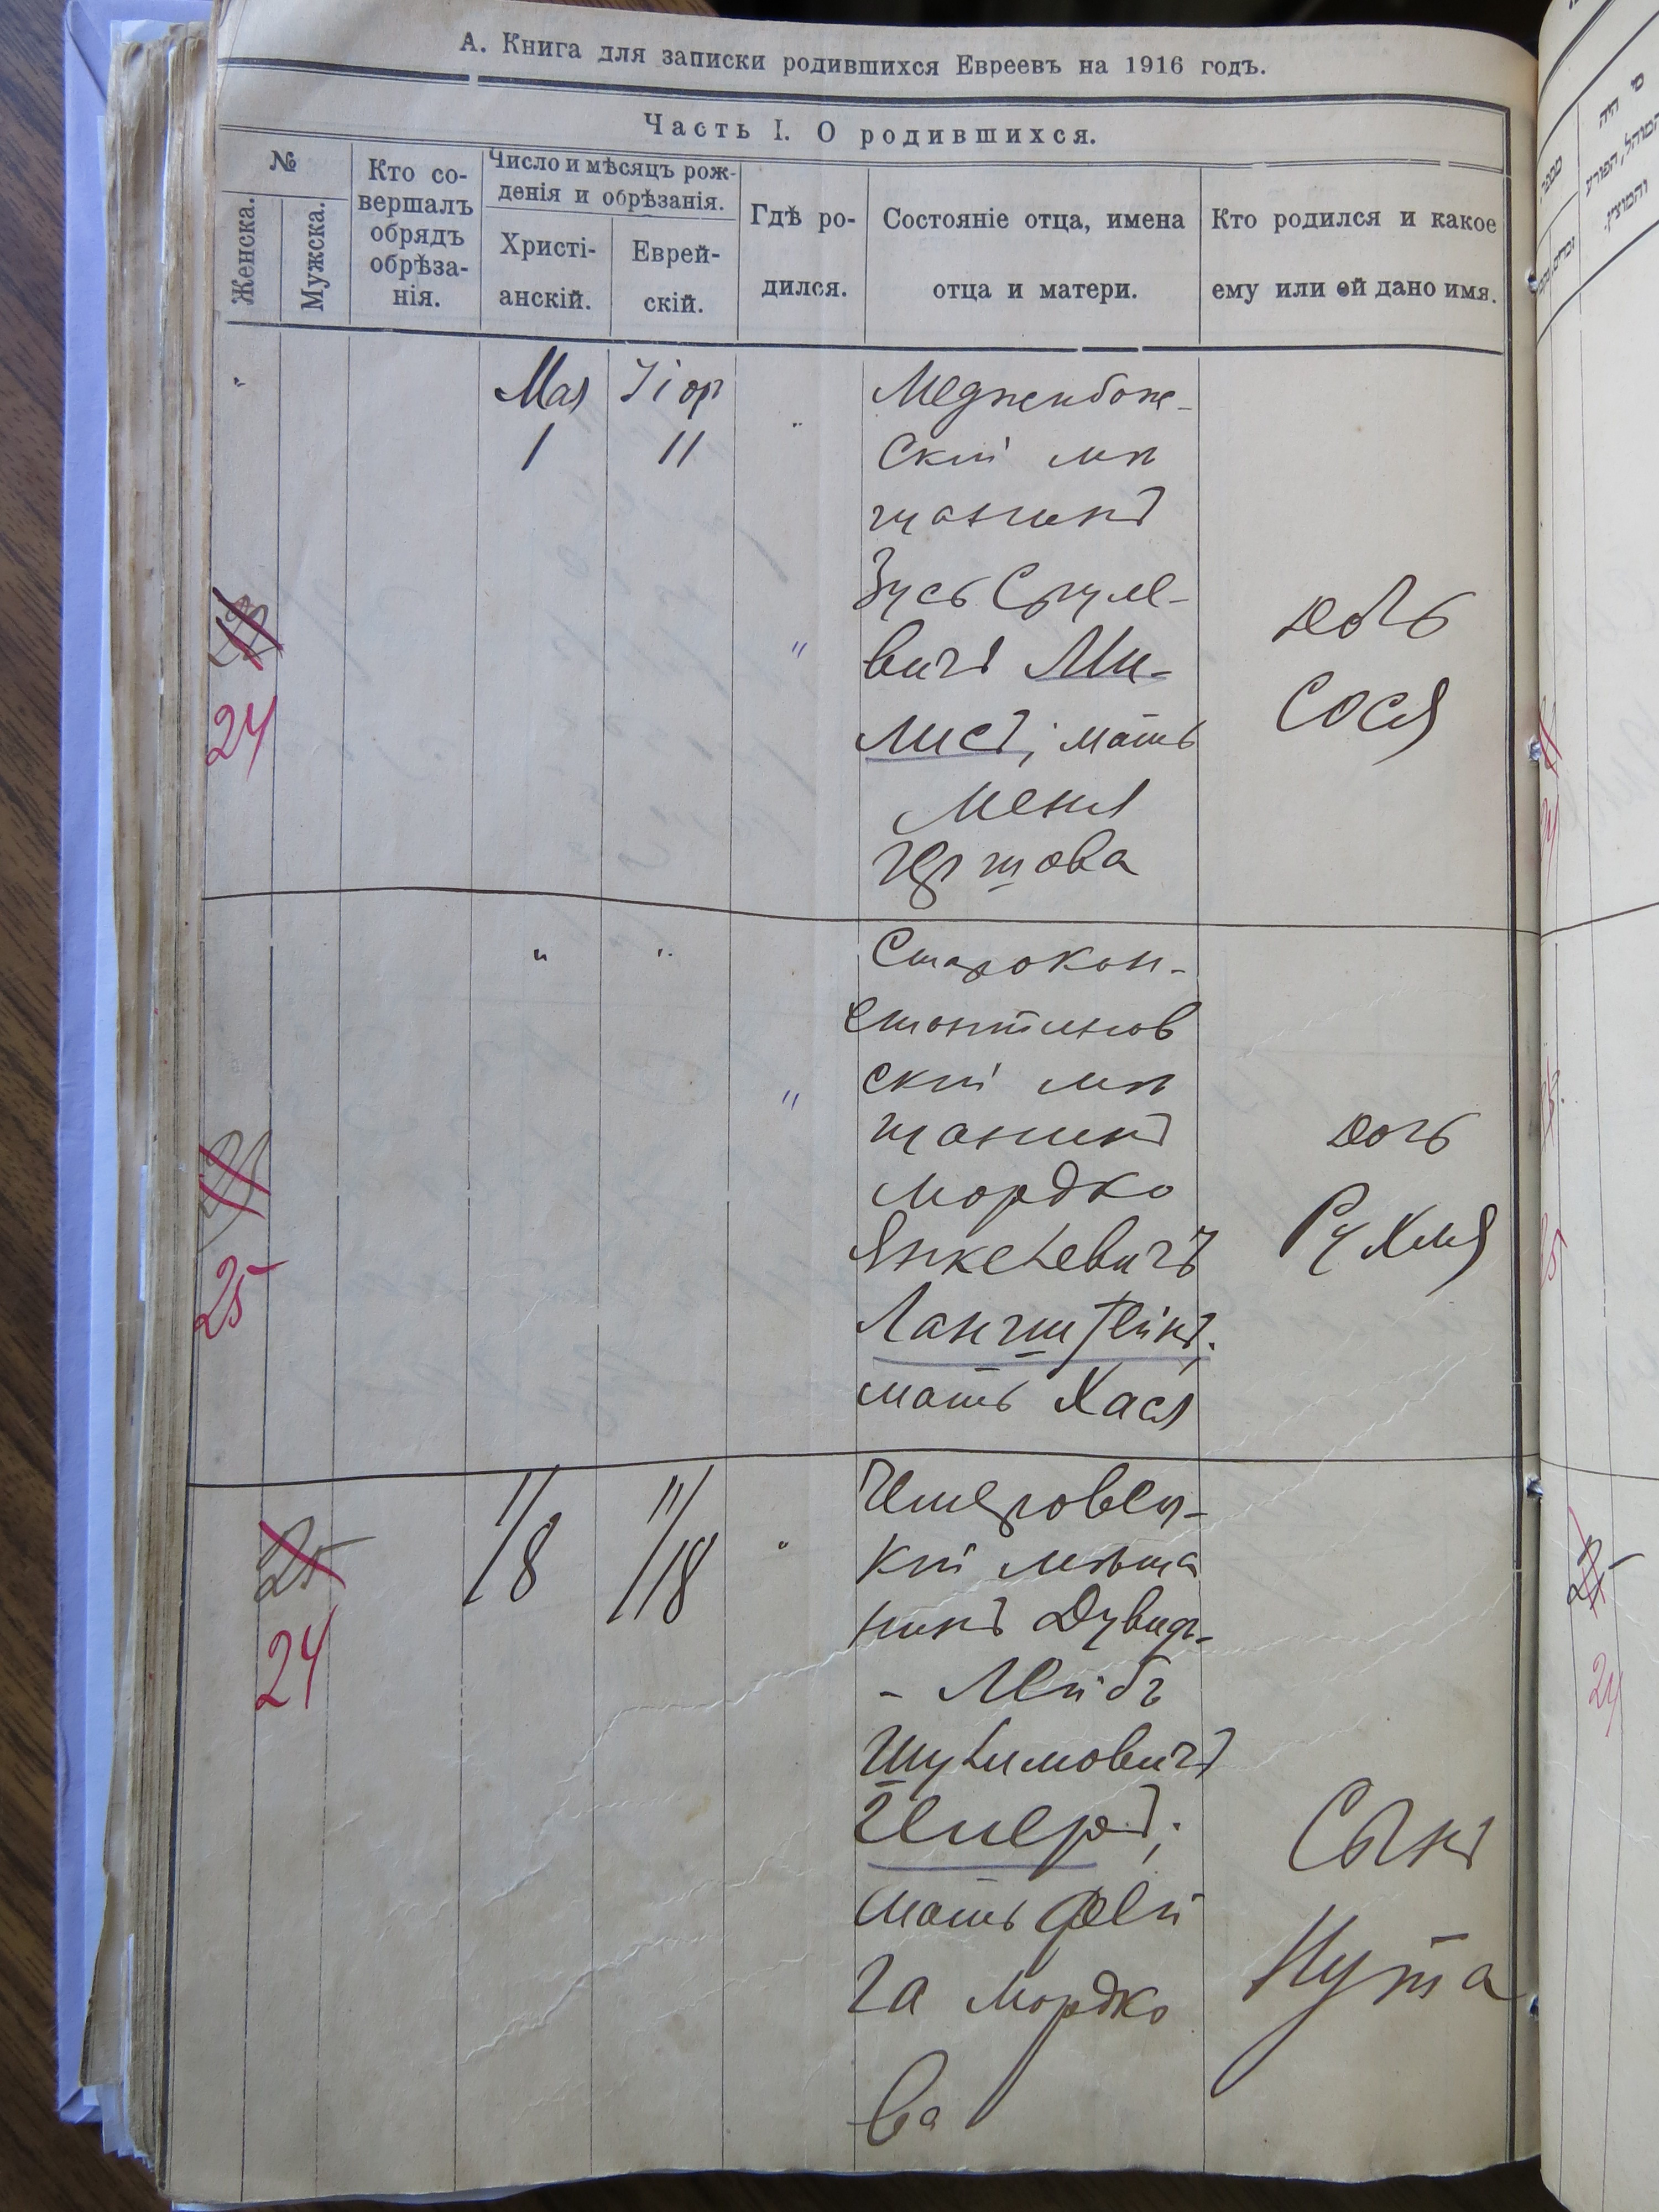 А. Книга для записки родившихся Евреевъ на 1916 годъ.
Часть I. О родившихся.
№
Женска.
Мужска.
Кто со-
вершалъ
обрядъ
обрѣза-
нія.
Число и мѣсяцъ рож-
денія и обрѣзанія.
Христі-
анскій.
Еврей-
скій.
Гдѣ ро-
дился.
Состояніе отца, имена
отца и матери.
Кто родился и какое
ему или ей дано имя.
24
Мая
1
Іiор
11
"
Меджибож-
скій мѣ
щанинъ
Зусь Сруле-
вичъ Ми-
лисъ; мать
Меня
Гершова
дочь
Сося
25
"
"
"
Старокон-
стантинов
скій мѣ
щанинъ
Мордко
Янкелевичъ
Лангштейнъ;
мать Хася
дочь
Рухля
25
24
1/8
11/18
"
кій мѣща
нинъ Дувид-
- Лейбъ
Шулимовичъ
мать Фей
га Мордко
ва
Сынъ
Нута